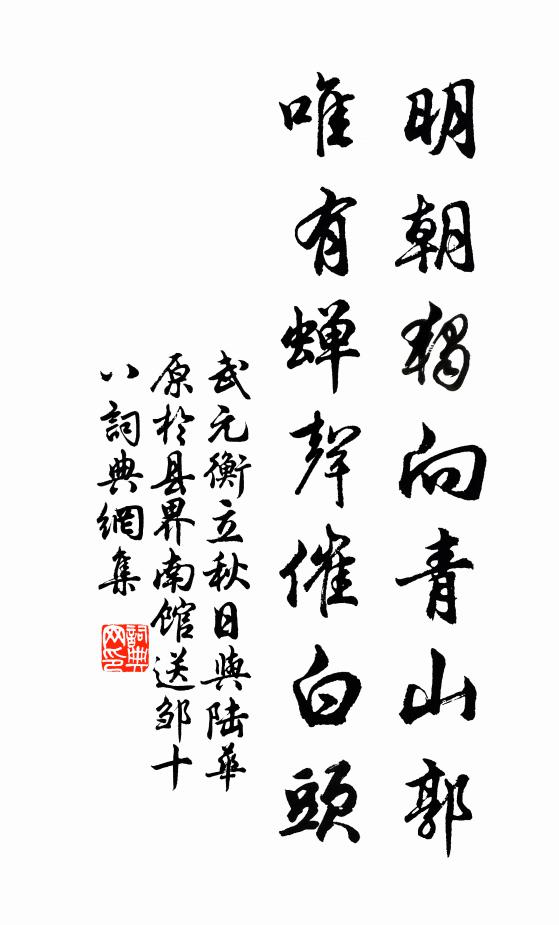 明朝獨向青山郭
唯有蟬聲催白頭
武元衡立秋日與陸華
原於县界南館送邹十
八詞典網集
詞典
网印